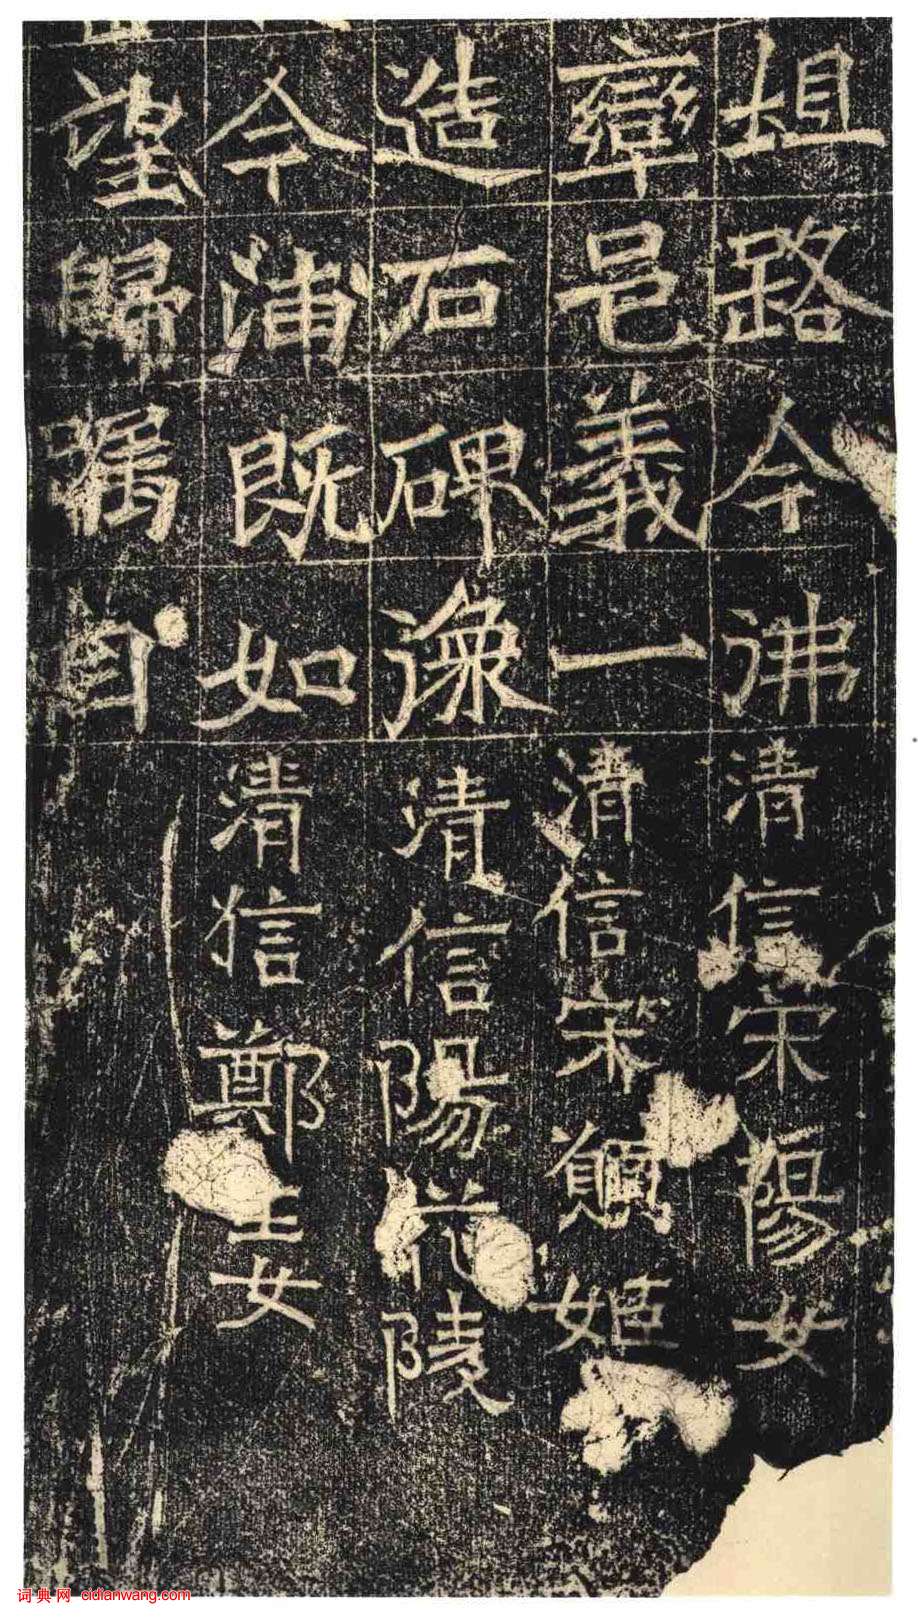 坦路今沸清信宋陽女
率邑義一清信宋顯姬
造石碑像清信陽花陵
今浦既如清信鄭王女
望歸自
词典网 cidianwang.com